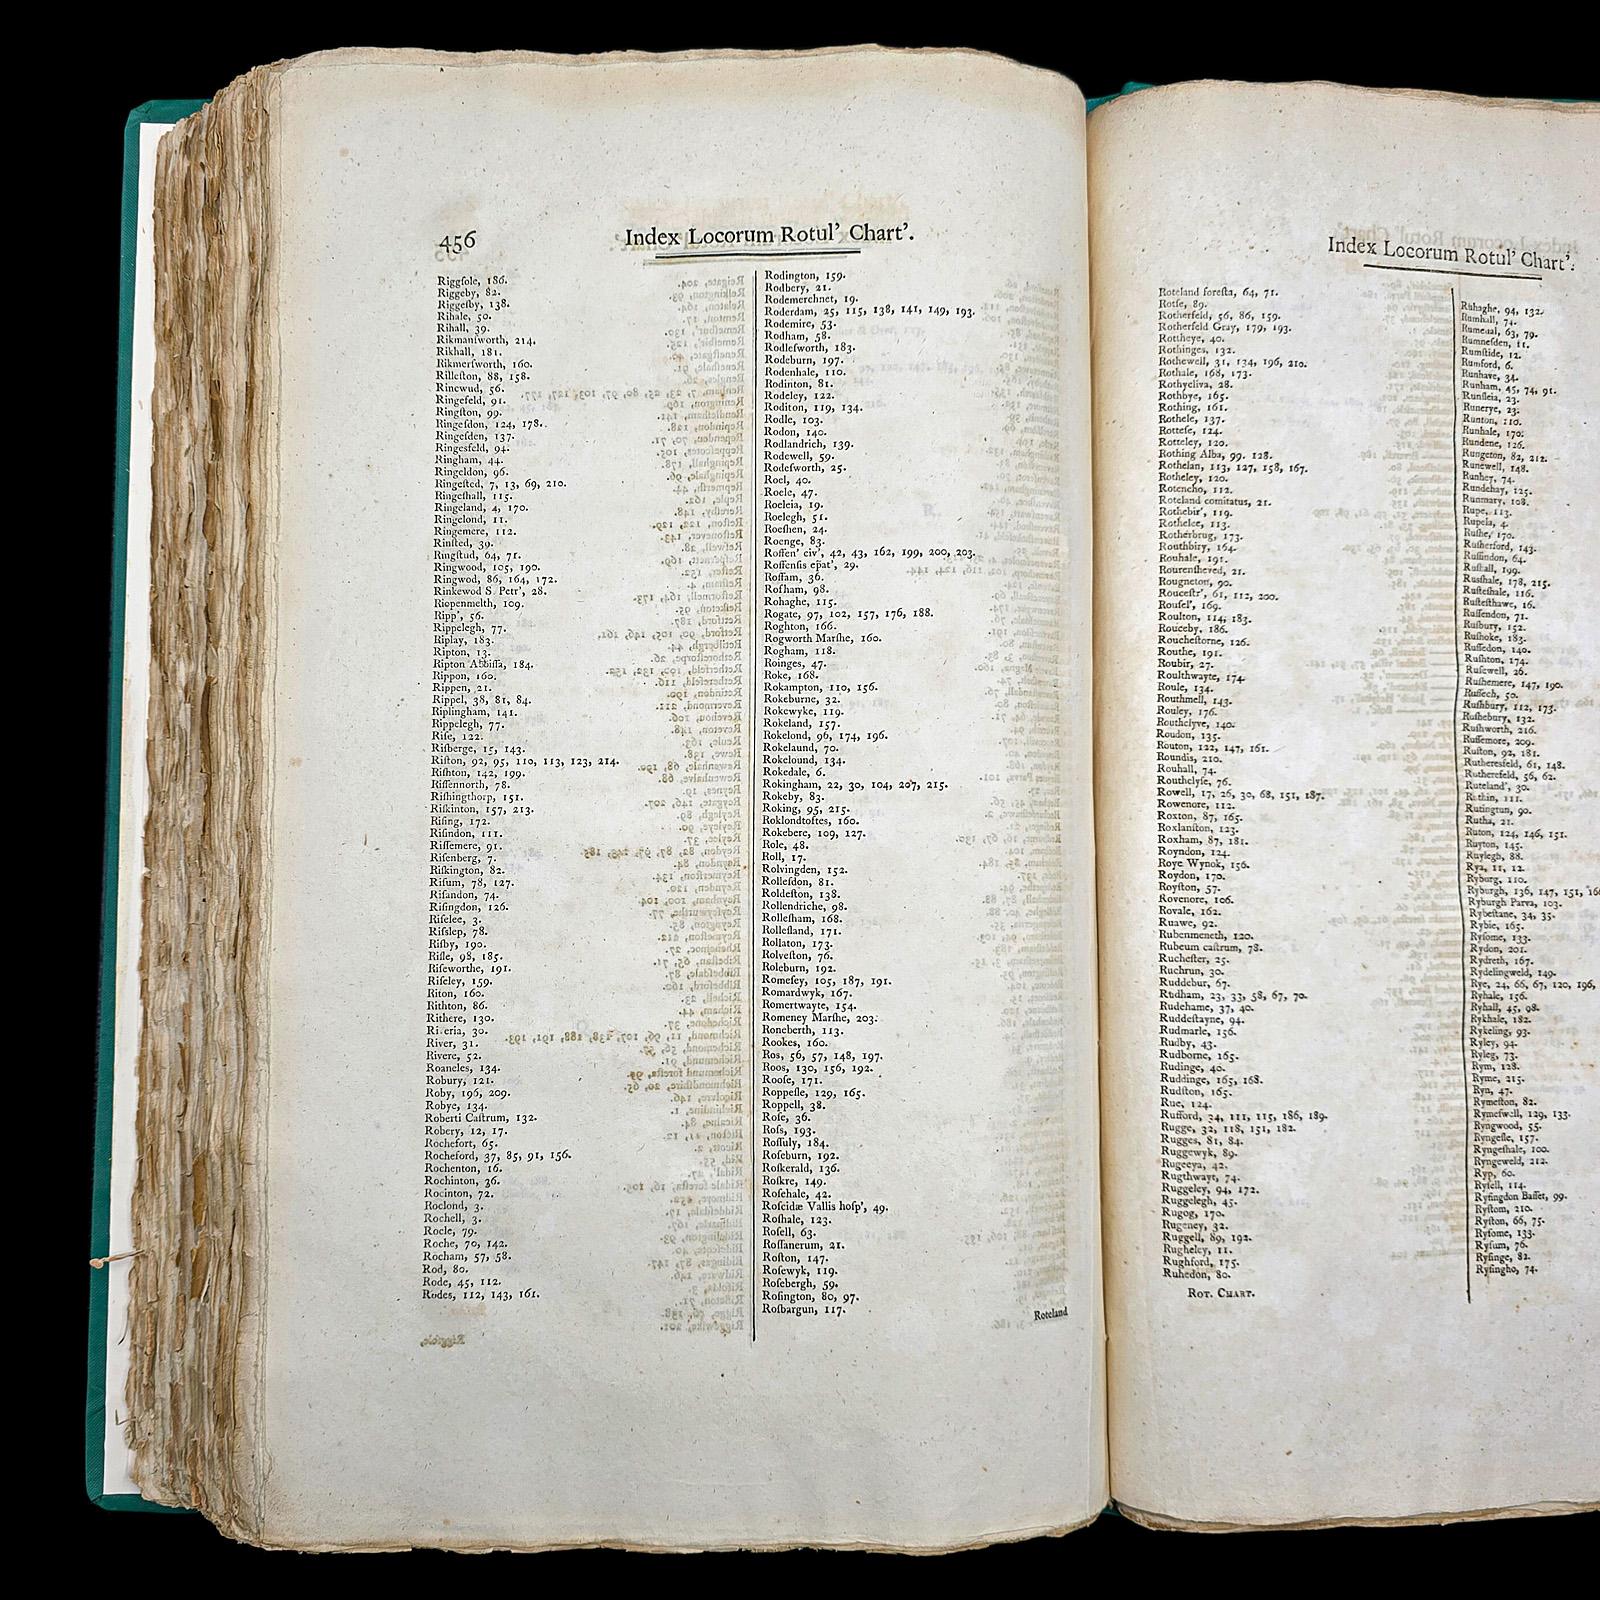 456
Index Locorum Rotul' Chart'.
Riggſole, 186.
Riggeby, 82.
Riggeſby, 138.
Rihale, 50.
Rihall, 39.
Rikmanſworth, 214.
Rikhall, 181.
Rikmerſworth, 160.
Rilleſton, 88, 158.
Rinewud, 56.
Ringefeld, 91.
Ringſton, 99.
Ringeſdon, 124, 178.
Ringeſden, 137.
Ringesfeld, 94.
Ringham, 44.
Ringeldon, 96.
Ringeſted, 7, 13, 69, 210.
Ringeſhall, 115.
Ringeland, 4, 170.
Ringelond, 11.
Ringemere, 112.
Rinſted, 39.
Ringſtud, 64, 71.
Ringwood, 105, 190.
Ringwod, 86, 164, 172.
Rinkewod S. Petr', 28.
Riopenmelth, 109.
Ripp', 56.
Rippelegh, 77.
Riplay, 183.
Ripton, 13.
Ripton Abbiſſa, 184.
Rippon, 160.
Rippen, 21.
Rippel, 38, 81, 84.
Riplingham, 141.
Rippelegh, 77.
Riſe, 122.
Riſberge, 15, 143.
Riſton, 92, 95, 110, 113, 123, 214.
Riſhton, 142, 199.
Riſſennorth, 78.
Riſhingthorp, 151.
Riſkinton, 157, 213.
Riſing, 172.
Riſindon, 111.
Riſſemere, 91.
Riſenberg, 7.
Riſkington, 82.
Riſum, 78, 127.
Riſandon, 74.
Riſingdon, 126.
Riſelee, 3.
Riſslep, 78.
Riſby, 190.
Riſle, 98, 185.
Riſeworthe, 191.
Riſeley, 159.
Riton, 160.
Rithton, 86.
Rithere, 130.
Ri eria, 30.
River, 31.
Rivere, 52.
Roancles, 134.
Robury, 121.
Roby, 196, 209.
Robye, 134.
Roberti Caſtrum, 132.
Robery, 12, 17.
Rochefort, 65.
Rocheford, 37, 85, 91, 156.
Rochenton, 16.
Rochinton, 36.
Rocinton, 72.
Roclond, 3.
Rochell, 3.
Rocle, 79.
Roche, 70, 142.
Rocham, 57, 58.
Rod, 80.
Rode, 45, 112.
Rodes, 112, 143, 161.
Rodington, 159.
Rodbery, 21.
Rodemerchnet, 19.
Roderdam, 25, 115, 138, 141, 149, 193.
Rodemire, 53.
Rodham, 58.
Rodleſworth, 183.
Rodeburn, 197.
Rodenhale, 110.
Rodinton, 81.
Rodeley, 122.
Roditon, 119, 134.
Rodle, 103.
Rodon, 140.
Rodlandrich, 139.
Rodewell, 59.
Rodeſworth, 25.
Roel, 40.
Roele, 47.
Roeleia, 19.
Roelegh, 51.
Roeſhen, 24.
Roenge, 83.
Roffen' civ', 42, 43, 162, 199, 200, 203.
Roffenſis epat', 29.
Roffam, 36.
Rofham, 98.
Rohaghe, 115.
Rogate, 97, 102, 157, 176, 188.
Roghton, 166.
Rogworth Marſhe, 160.
Rogham, 118.
Roinges, 47.
Roke, 168.
Rokampton, 110, 156.
Rokeburne, 32.
Rokewyke, 119.
Rokeland, 157.
Rokelond, 96, 174, 196.
Rokelaund, 70.
Rokelound, 134.
Rokedale, 6.
Rokingham, 22, 30, 104, 207, 215.
Rokeby, 83.
Roking, 95, 215.
Roklondtoftes, 160.
Rokebere, 109, 127.
Role, 48.
Roll, 17.
Rolvingden, 152.
Rolleſdon, 81.
Roldeſton, 138.
Rollendriche, 98.
Rolleſham, 168.
Rolleſland, 171.
Rollaton, 173.
Rolveſton, 76.
Roleburn, 192.
Romeſey, 105, 187, 191.
Romardwyk, 167.
Romertwayte, 154.
Romeney Marſhe, 203.
Roneberth, 113.
Rookes, 160.
Ros, 56, 57, 148, 197.
Roos, 130, 156, 192.
Rooſe, 171.
Roppeſle, 129, 165.
Roppell, 38.
Roſe, 36.
Roſs, 193.
Roſſuly, 184.
Roſeburn, 192.
Roſkerald, 136.
Roſkre, 149.
Roſehale, 42.
Roſcidæ Vallis hoſp', 49.
Roſhale, 123.
Roſell, 63.
Roſſanerum, 21.
Roſton, 147.
Roſewyk, 119.
Roſebergh, 59.
Roſington, 80, 97.
Roſbargun, 117.
Roteland
Index Locorum Rotul' Chart'.
Roteland foreſta, 64, 71.
Rotſe, 89.
Rotherfeld, 56, 86, 159.
Rotherfeld Gray, 179, 193.
Rottheye, 40.
Rothinges, 132.
Rothewell, 31, 134, 196, 210.
Rothale, 168, 173.
Rothyeliva, 28.
Rothbye, 165.
Rothing, 161.
Rothele, 137.
Rotteſe, 124.
Rotteley, 120.
Rothing Alba, 99, 128.
Rothelan, 113, 127, 158, 167.
Rotheley, 120.
Rotencho, 112.
Roteland comitatus, 21.
Rothebir', 119.
Rothelee, 113.
Rotherbrug, 173.
Routhbiry, 164.
Rouhale, 191.
Rourenſheved, 21.
Rougneton, 90.
Rouceſtr', 61, 112, 200.
Rouſel', 169.
Roulton, 114, 183.
Rouceby, 186.
Roucheſtorne, 126.
Routhe, 191.
Roubir, 27.
Roulthwayte, 174.
Roule, 134.
Routhmell, 143.
Rouley, 176.
Routhclyve, 140.
Roudon, 135.
Routon, 122, 147, 161.
Roundis, 210.
Rouhall, 74.
Routhelyſe, 76.
Rowell, 17, 26, 30, 68, 151, 187.
Rowenore, 112.
Roxton, 87, 165.
Roxlanſton, 123.
Roxham, 87, 181.
Royndon, 124.
Roye Wynok, 156.
Roydon, 170.
Royſton, 57.
Rovenore, 106.
Rovale, 162.
Ruawe, 92.
Rubenmeneth, 120.
Rubeum caſtrum, 78.
Rucheſter, 25.
Ruchrun, 30.
Ruddebur, 67.
Rudham, 23, 33, 58, 67, 70.
Rudehame, 37, 40.
Ruddeſtayne, 94.
Rudmarle, 156.
Rudby, 43.
Rudborne, 165.
Rudinge, 40.
Ruddinge, 165, 168.
Rudſton, 165.
Rue, 124.
Rufford, 34, 111, 115, 186, 189.
Rugge, 32, 118, 151, 182.
Rugges, 81, 84.
Ruggewyk, 89.
Rugeeya, 42.
Rugthwayt, 74.
Ruggeley, 94, 172.
Ruggelegh, 45.
Rugog, 170.
Rugeney, 32.
Ruggell, 89, 192.
Rugheley, 11.
Rughford, 175.
Ruhedon, 80.
Rot. Chart.
Ruhaghe, 94, 132.
Rumhall, 74.
Rumenal, 63, 79.
Rumneſden, 11.
Rumſtide, 12.
Rumford, 6.
Runhave, 34.
Runham, 45, 74, 91.
Runſleia, 23.
Runerye, 23.
Runton, 110.
Runhale, 170.
Rundene, 126.
Rungeton, 82, 212.
Runewell, 148.
Runhey, 74.
Rundehay, 125.
Runmary, 108.
Rupe, 113.
Rupela, 4.
Ruſhe, 170.
Ruſherford, 143.
Ruſſindon, 64.
Ruſtall, 199.
Rusſhale, 178, 215.
Ruſteſhale, 116.
Ruſteſthawe, 16.
Ruſſendon, 71.
Ruſbury, 152.
Ruſhoke, 183.
Ruſſedon, 140.
Ruſhton, 174.
Ruſewell, 26.
Ruſhemere, 147, 190.
Ruſſech, 50.
Ruſhbury, 112, 173.
Ruſhebury, 132.
Ruſhworth, 216.
Ruſſemore, 209.
Ruſton, 92, 181.
Rutheresfeld, 61, 148.
Rutherefeld, 56, 62.
Ruteland', 30.
111.
Rutingrun, 90.
Rutha, 21.
Ruton, 124, 146, 151.
Ruyton, 145.
Ruylegh, 88.
Rya, 11, 12.
Ryburg, 110.
Ryburgh, 136, 147, 151,
Ryburgh Parva, 103.
Rybeſtane, 34, 35.
Rybie, 165.
Ryſome, 133.
Rydon, 201.
Rydreth, 167.
Rydelingweld, 149.
Rye, 24, 66, 67, 120, 196,
Ryhale, 156.
Ryhall, 45, 98.
Rykhale, 182.
Rykeling, 93.
Ryley, 94.
Ryleg, 73.
Rym, 128.
Ryme, 215.
Ryn, 47.
Rymeſton, 82.
Rymeſwell, 129, 133.
Ryngwood, 55.
Ryngeſle, 157.
Ryngeſhale, 100.
Ryngeweld, 212.
Ryp, 60.
Ryſell, 114.
Ryſingdon Baſſet, 99.
Ryſtom, 210.
Ryſton, 66, 75.
Ryſome, 133.
Ryſum, 76.
Ryſinge, 82.
Ryſingho, 74.